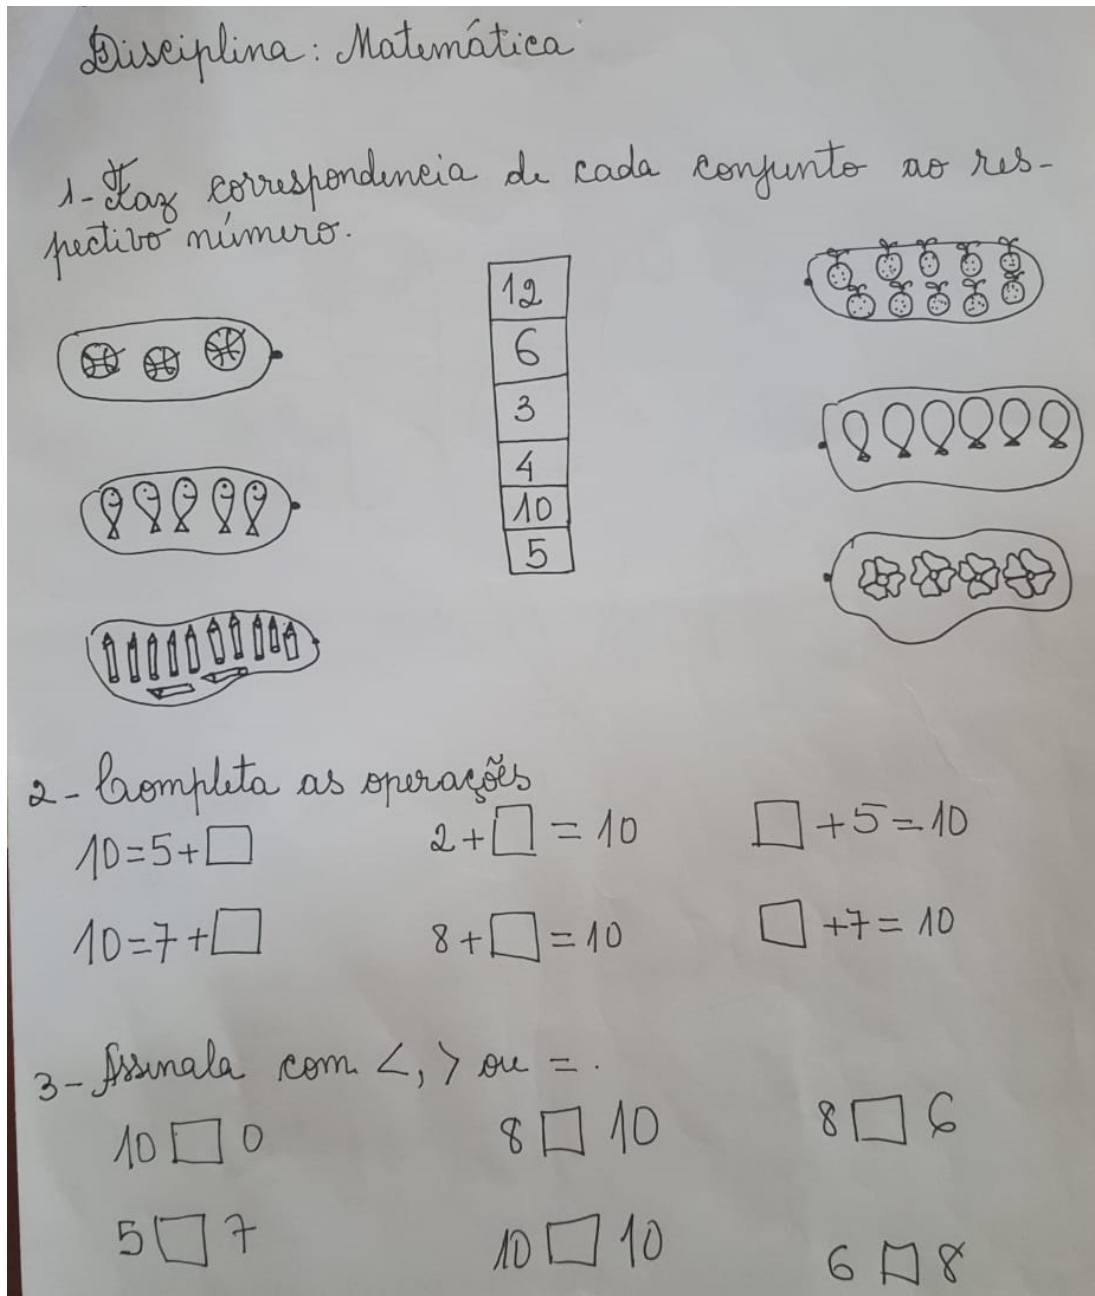 Disciplina: Matemática
1- Faz correspondencia de cada conjunto ao res-
pectivo número.
12
6
3
4
10
5
2- Completa as operações
10=5+□ 2+□=10 □+5=10
10=7+□ 8+□=10 □+7=10
3- Assinala com <, > ou =.
10 □ 0 8 □ 10 8 □ 6
5 □ 7 10 □ 10 6 □ 8